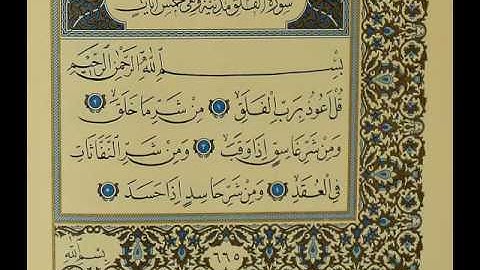 سورة الفلق مدنية وهي خمس آيات
بِسْمِ اللّٰهِ الرَّحْمٰنِ الرَّحِيمِ
قُلْ أَعُوذُ بِرَبِّ الْفَلَقِ ١ مِنْ شَرِّ مَا خَلَقَ ٢
وَمِنْ شَرِّ غَاسِقٍ إِذَا وَقَبَ ٣ وَمِنْ شَرِّ النَّفَّاثَاتِ
فِي الْعُقَدِ ٤ وَمِنْ شَرِّ حَاسِدٍ إِذَا حَسَدَ ٥
٦٦٥
بسم الله